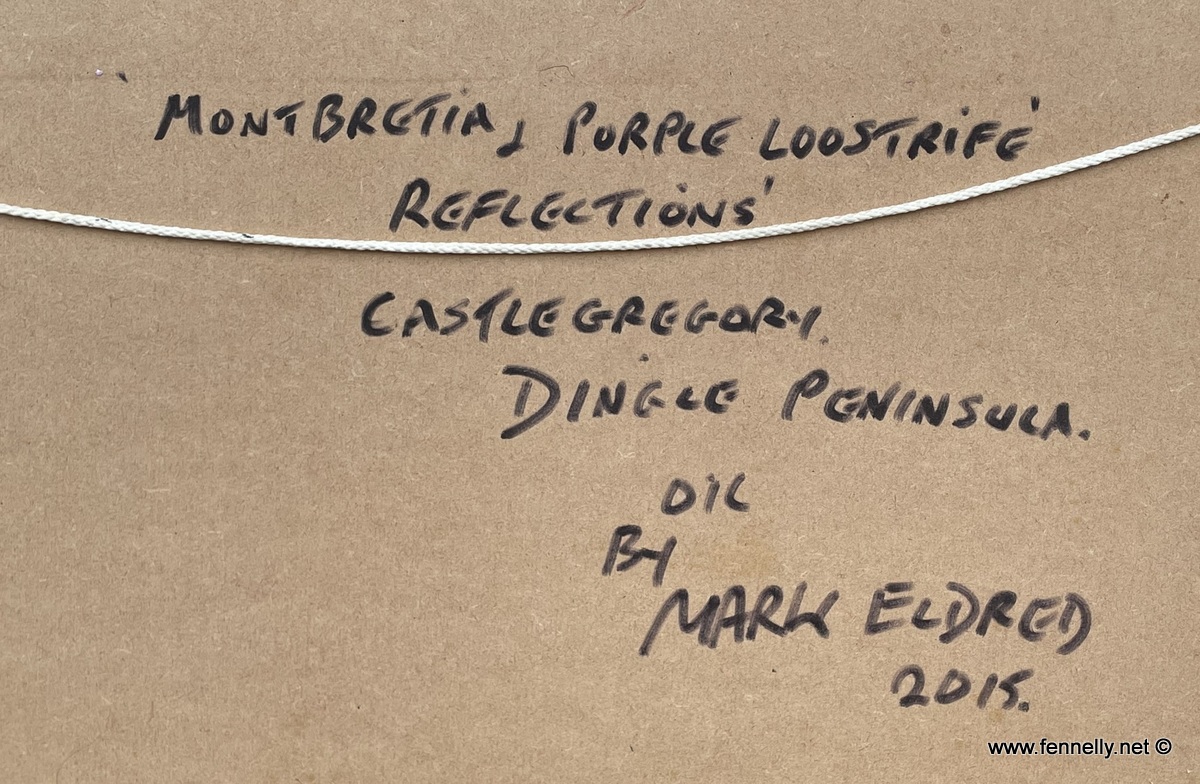 'MONTBRETIA, PURPLE LOOSTRIFE'
REFLECTIONS'
CASTLEGREGORY.
DINGLE PENINSULA.
OIL
BY
MARK ELDRED
2015.
www.fennelly.net ©